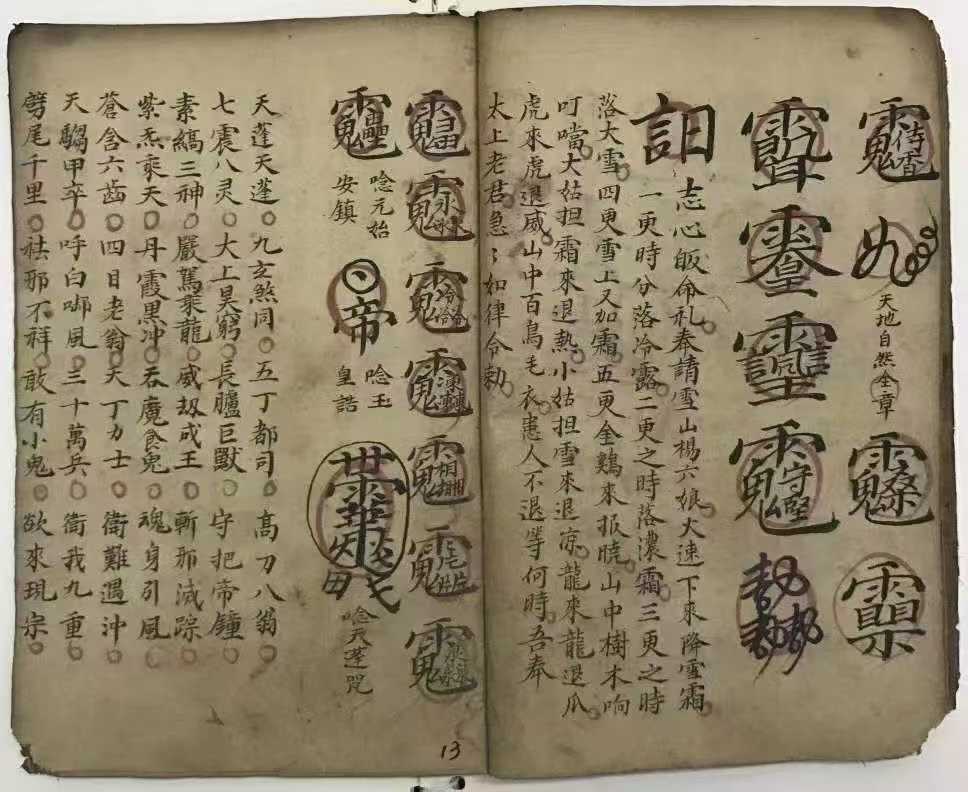 天地自然全章
詛
志心皈命礼奉請雪山楊六娘火速下來降雪霜。
一更時分落冷露二更之時落濃霜三更之時
落大雪四更雪上又加霜。五更金鷄來报曉山中樹木响
叮噹。大姑担霜來退熱。小姑担雪來退凉。龍來龍退爪。
虎來虎退威山中百鳥毛衣患人不退等何時。吾奉
太上老君急〻如律令勅。
唸元始
安鎮
帝
唸玉
皇誥
唸天蓬咒
天蓬天蓬○九玄煞同○五丁都司○高刀八翁○
七震八灵○大上昊窮○長臚巨獸○守把帝鐘○
素縞三神○嚴駕夔龍○威劔成王○斬邪滅踪○
紫炁乘天○丹霞黒冲○吞魔食鬼○魂身引風○
蒼含六齒○四目老翁○天丁力士○衛難遇沖○
天騶甲卒○呼白啷風○三十萬兵○衛我九重○
劈尾千里○祛邪不祥○敢有小鬼○欲來現宗○
13